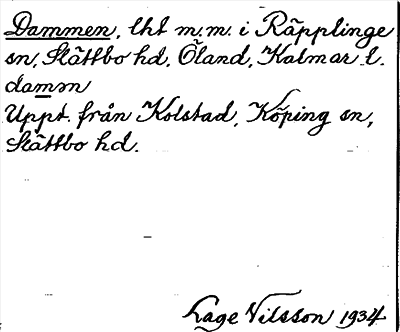 Dammen, lht m.m. i Räpplinge
sn, Slättbo hd, Öland, Kalmar l.
damm
Uppt. från Kolstad, Köping sn,
Slättbo hd.
Lage Nilsson 1934